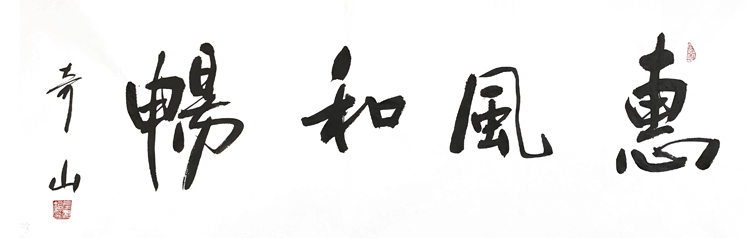 惠風和暢
奇山